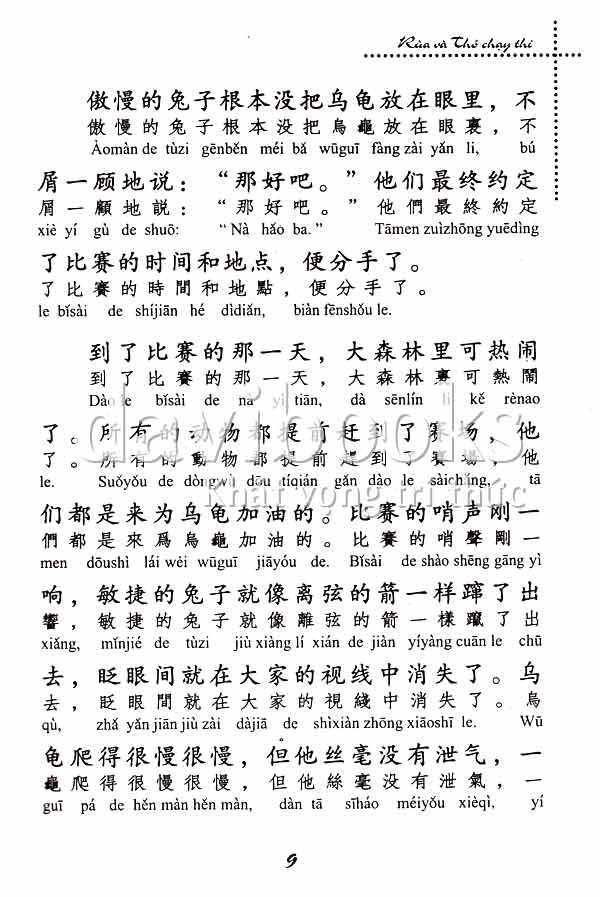 Rùa và Thỏ chạy thi
傲慢的兔子根本没把乌龟放在眼里，不
傲慢的兔子根本没把烏龜放在眼裏，不
Àomàn de tùzi gēnběn méi bǎ wūguī fàng zài yǎn li, bú
屑一顾地说：“那好吧。”他们最终约定
屑一顧地說：“那好吧。”他們最終約定
xiè yí gù de shuō: “Nà hǎo ba.” Tāmen zuìzhōng yuēdìng
了比赛的时间和地点，便分手了。
了比賽的時間和地點，便分手了。
le bǐsài de shíjiān hé dìdiǎn, biàn fēnshǒu le.
到了比赛的那一天，大森林里可热闹
到了比賽的那一天，大森林裏可熱鬧
Dào le bǐsài de na yì tiān, dà sēnlín li kě rènao
了。所有的动物都提前赶到了赛场，他
了。所有的動物都提前趕到了賽場，他
le. Suǒyǒu de dòngwù dōu tíqián gǎn dào le sàichǎng, tā
davibooks
Khát vọng tri thức
们都是来为乌龟加油的。比赛的哨声刚一
們都是來爲烏龜加油的。比賽的哨聲剛一
men dōushì lái wèi wūguī jiāyóu de. Bǐsài de shào shēng gāng yì
响，敏捷的兔子就像离弦的箭一样蹿了出
響，敏捷的兔子就像離弦的箭一樣躥了出
xiǎng, mǐnjié de tùzi jiù xiàng lí xián de jiàn yíyàng cuān le chū
去，眨眼间就在大家的视线中消失了。乌
去，眨眼間就在大家的視綫中消失了。烏
qù, zhǎ yǎn jiān jiù zài dàjiā de shìxiàn zhōng xiāoshī le. Wū
龟爬得很慢很慢，但他丝毫没有泄气，一
龜爬得很慢很慢，但他絲毫没有泄氣，一
guī pá de hěn màn hěn màn, dàn tā sīháo méiyǒu xièqì, yí
9